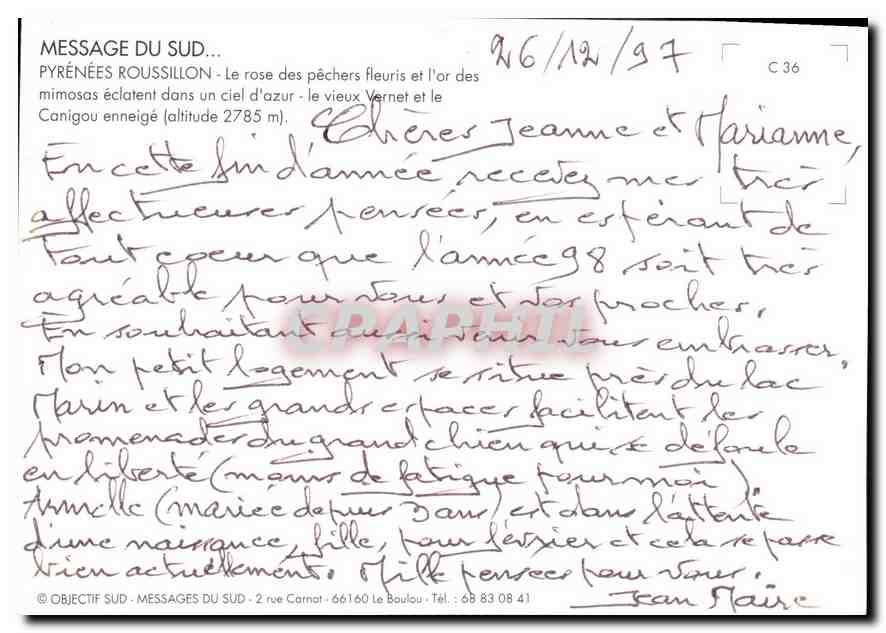 MESSAGE DU SUD...
26/12/97
C 36
PYRÉNÉES ROUSSILLON - Le rose des pêchers fleuris et l'or des
mimosas éclatent dans un ciel d'azur - le vieux Vernet et le
Canigou enneigé (altitude 2785 m).
Chères Jeanne et Marianne,
En cette fin d'année recevez mes très
affectueuses pensées, en espérant de
tout coeur que l'année 98 soit très
agréable pour vous et vos proches.
En souhaitant aussi venir vous embrasser.
Mon petit logement se situe près du lac
Marin et les grands espaces facilitent les
promenades du grand chien qui se défoule
en liberté (moins de fatigue pour moi).
Armelle (mariée depuis 3 ans) est dans l'attente
d'une naissance, fille, pour février et cela se passe
bien actuellement. Mille pensées pour vous.
Jean Maire
CPAPHIL
© OBJECTIF SUD - MESSAGES DU SUD - 2 rue Carnot - 66160 Le Boulou - Tél. : 68 83 08 41